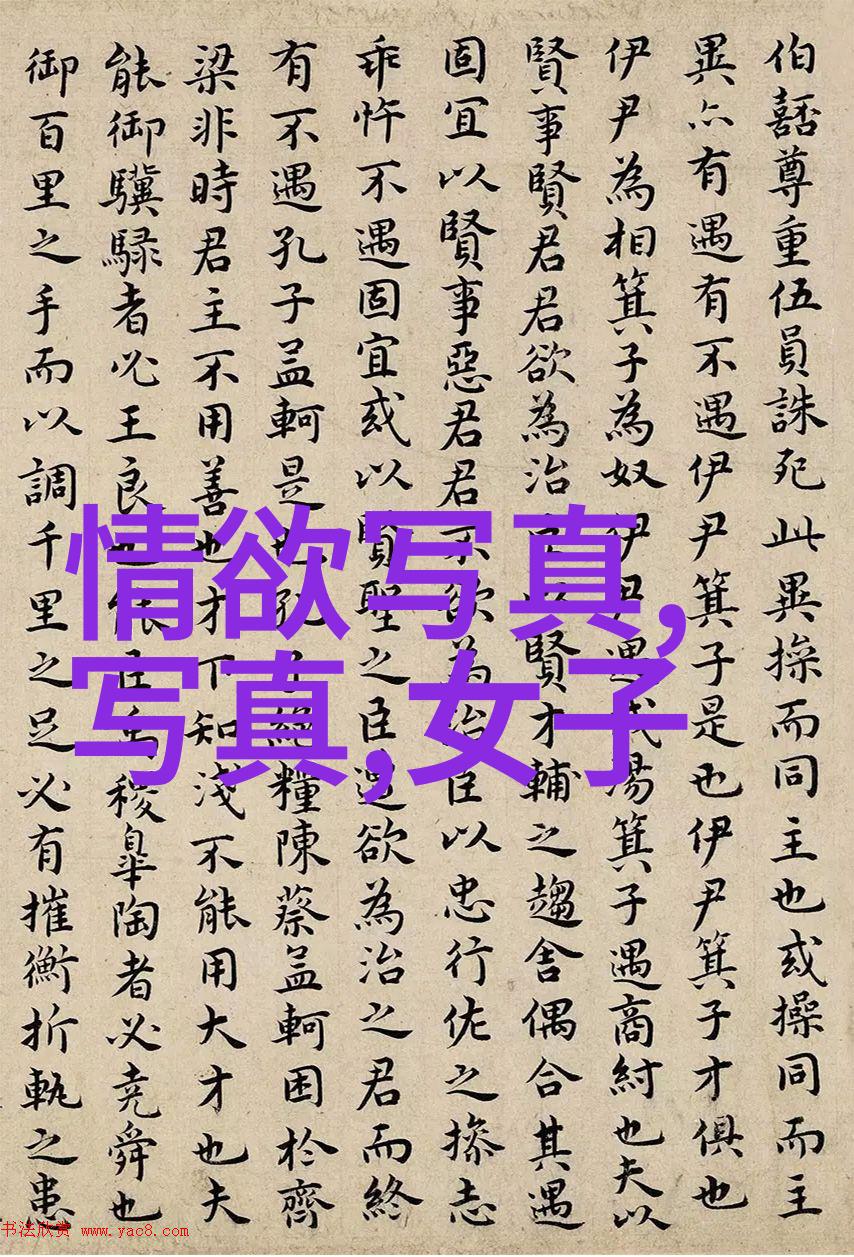 伯嚭尊重伍員誅死此異操而同主也或操同而主
異亦有遇有不遇伊尹箕子是也伊尹箕子才俱也
伊尹為相箕子為奴伊尹遇成湯箕子遇商紂也夫以
賢事賢君君欲為治臣以賢才輔之趨舍偶合其遇
固宜以賢事惡君君不欲為治臣以忠行佐之操志
乖忤不遇固宜或以賢聖之臣遭欲為治之君而終
有不遇孔子孟軻是也孔子絕糧陳蔡孟軻困於齊
梁非時君主不用善也才下知淺不能用大才也夫
能御驥騄者必王良也能臣禹稷皋陶者必堯舜也
御百里之手而以調千里之足必有摧衡折軛之患
情欲写真,
写真,女子
书法欣赏 www.yac8.com